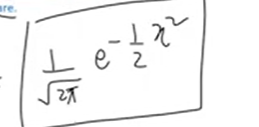 are.
1/√2π e^-1/2 x^2